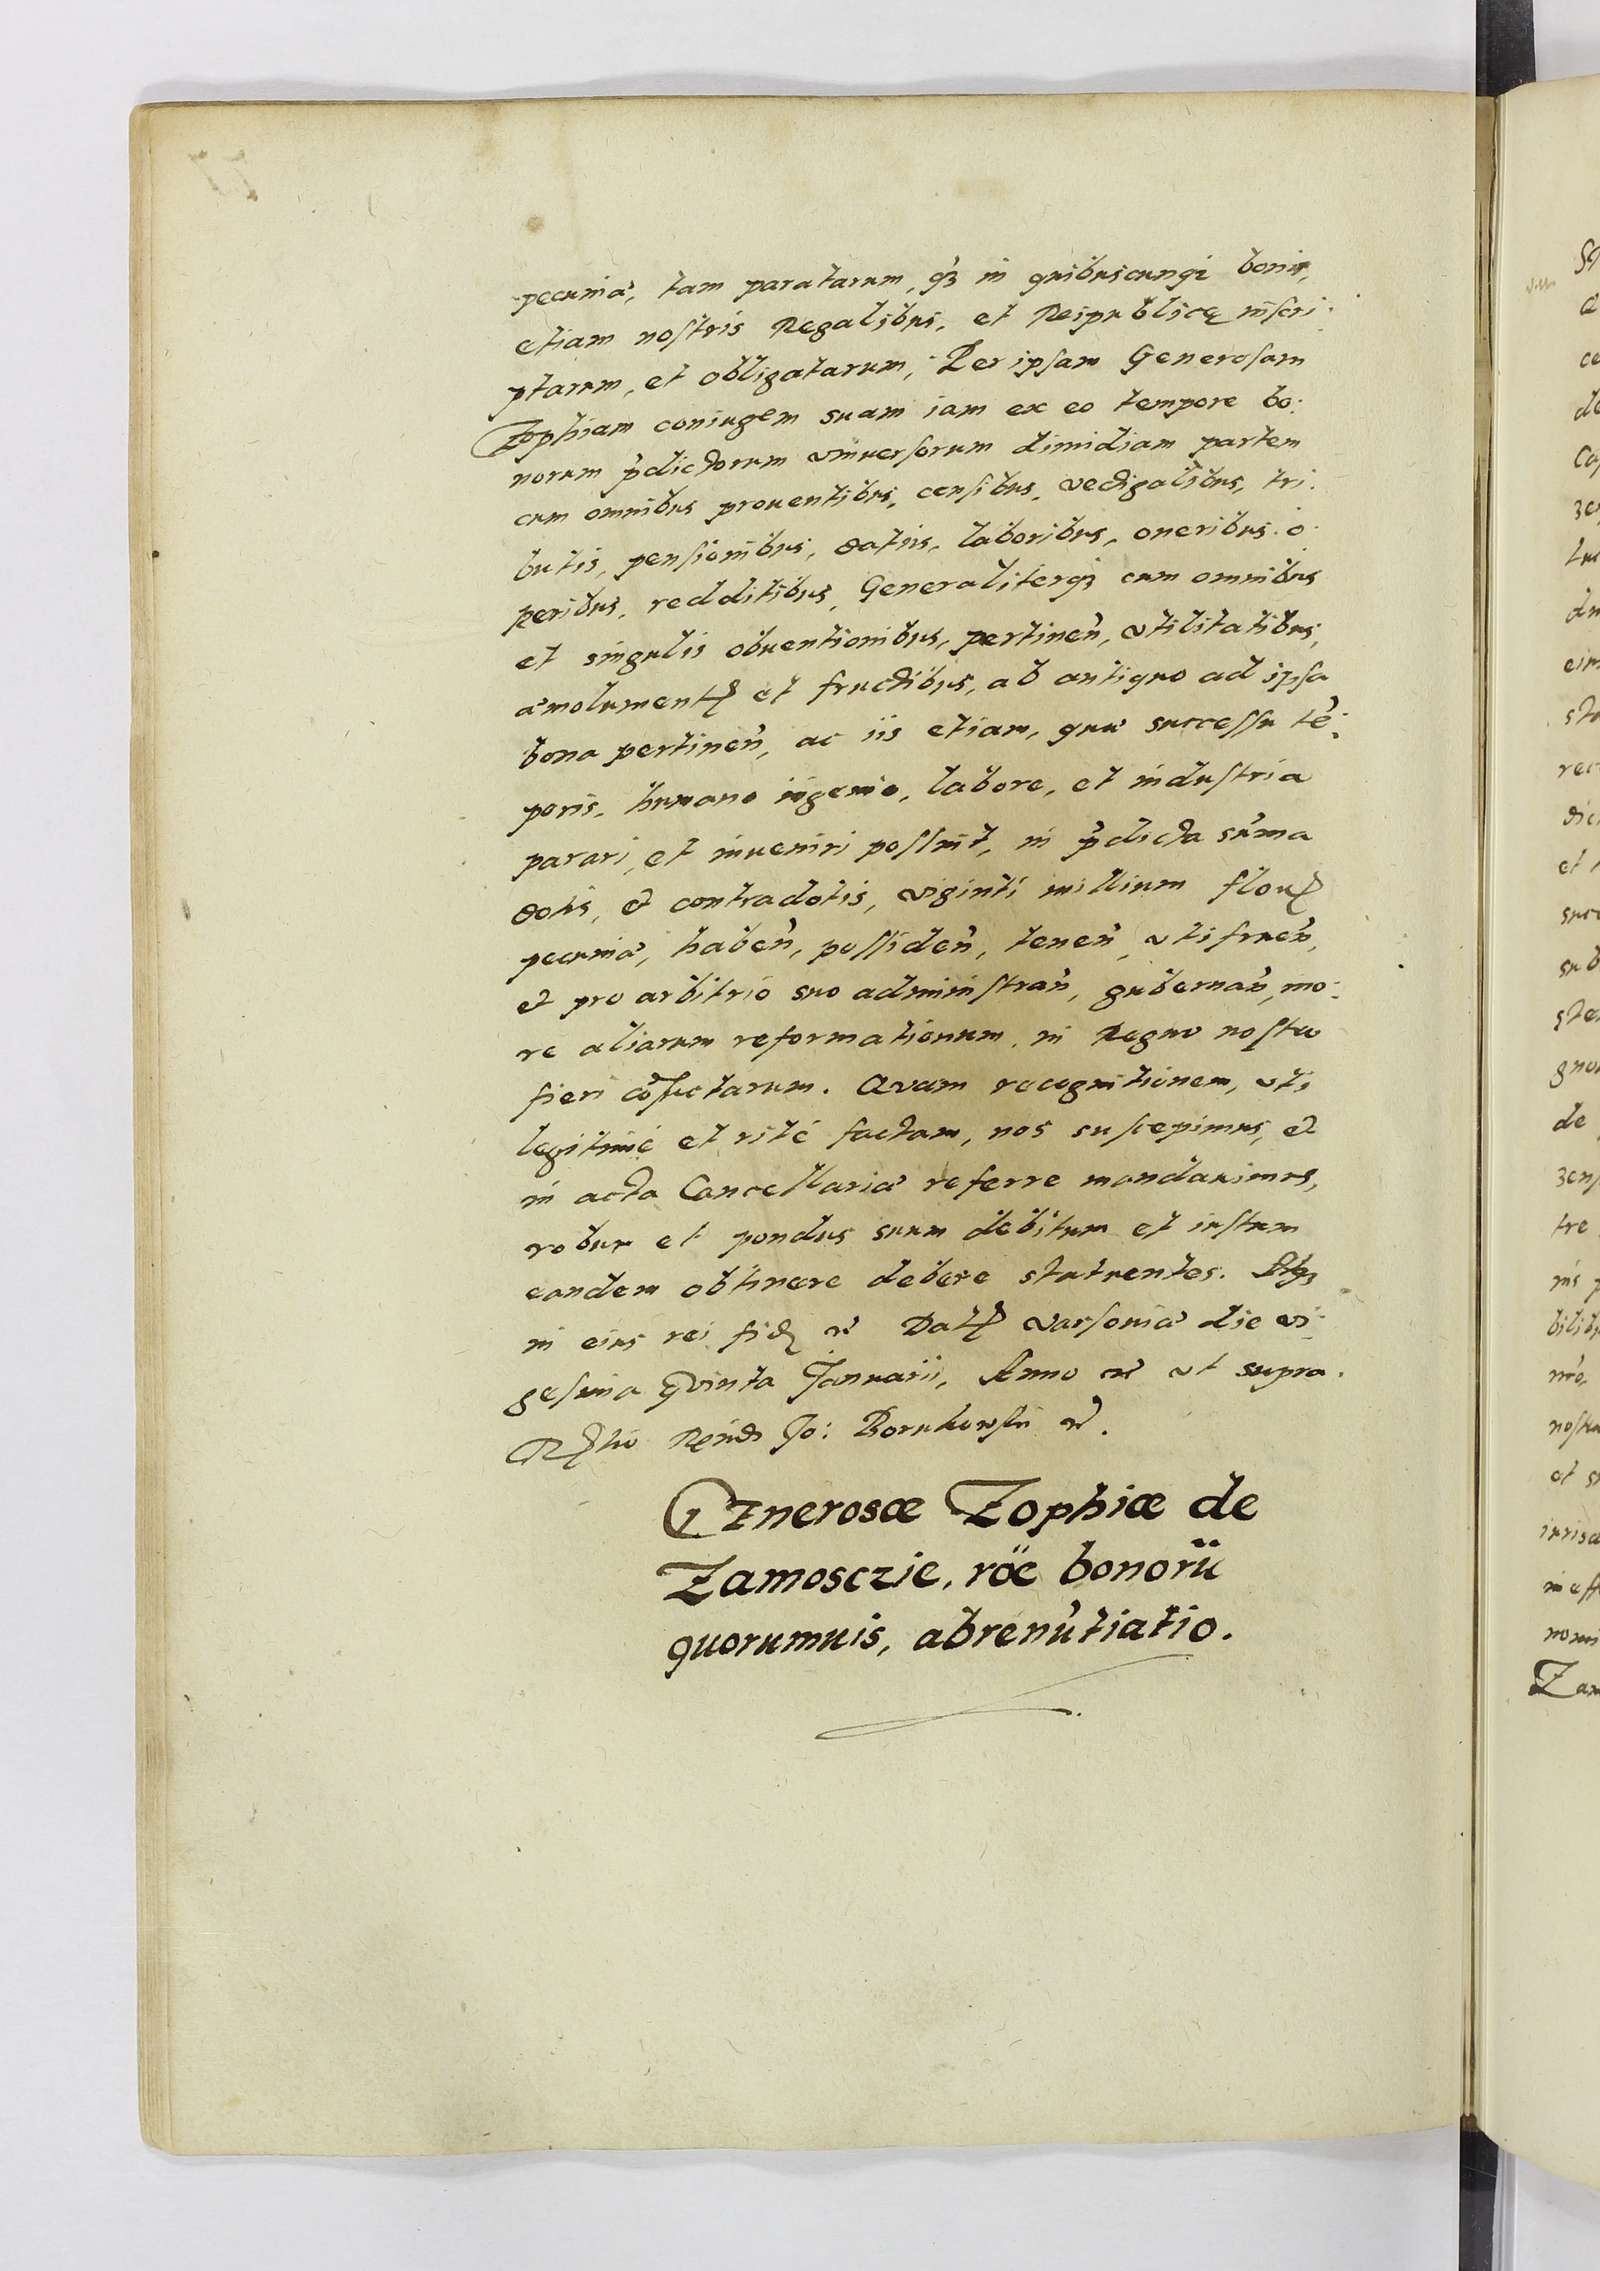 pecuniæ, tam paratarum, qȝ in quibuscunqȝ bonis,
etiam nostris Regalibus, et Reipublicę inscri:
ptarum, et obligatarum, Per ipsam Generosam
Zophiam coniugem suam iam ex eo tempore bo:
norum p̃dictorum vniuersorum dimidiam partem
cum omnibus prouentibus, censibus, vectigalibus, tri:
butis, pensionibus, datiis, laboribus, oneribus o:
peribus, redditibus, Generaliterqȝ cum omnibus
et singulis obuentionibus, pertineñ, vtilitatibus,
æmolument et fructibus, ab antiquo ad ipsa
bona pertineñ, ac iis etiam, quæ successu tẽ:
poris, humano ingenio, labore, et industria
parari, et inueniri possint, in p̃dicta sũma
dotis, et contradotis, viginti millium flor
pecuniæ, habeñ, possideñ, teneñ, vtifrueñ,
et pro arbitrio suo administrañ, gubernañ, mo:
re aliarum reformationum, in Regno nostro
fieri cõsuetarum. Quam recognitionem, vti
legitimè et ritè factam, nos suscepimus, et
in acta Cancellariæ referre mandauimus,
robur et pondus suum debitum et iustum
eandem obtinere debere statuentes. Atqȝ
in eius rei fid Dat Varsouiæ die vi:
gesima Quinta Januarii, Anno ut supra.
Jo: Borukowski
GEnerosæ Zophiæ de
Zamosczie, rõe bonorũ
quorumuis, abrenũtiatio.